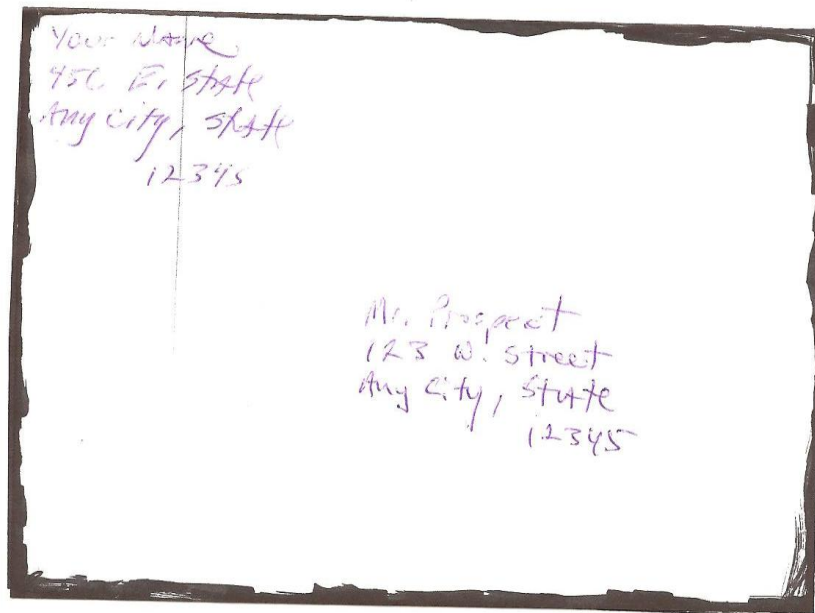 Your Name
456 E. State
Any City, State
12345
Mr. Prospect
123 W. Street
Any City, State
12345